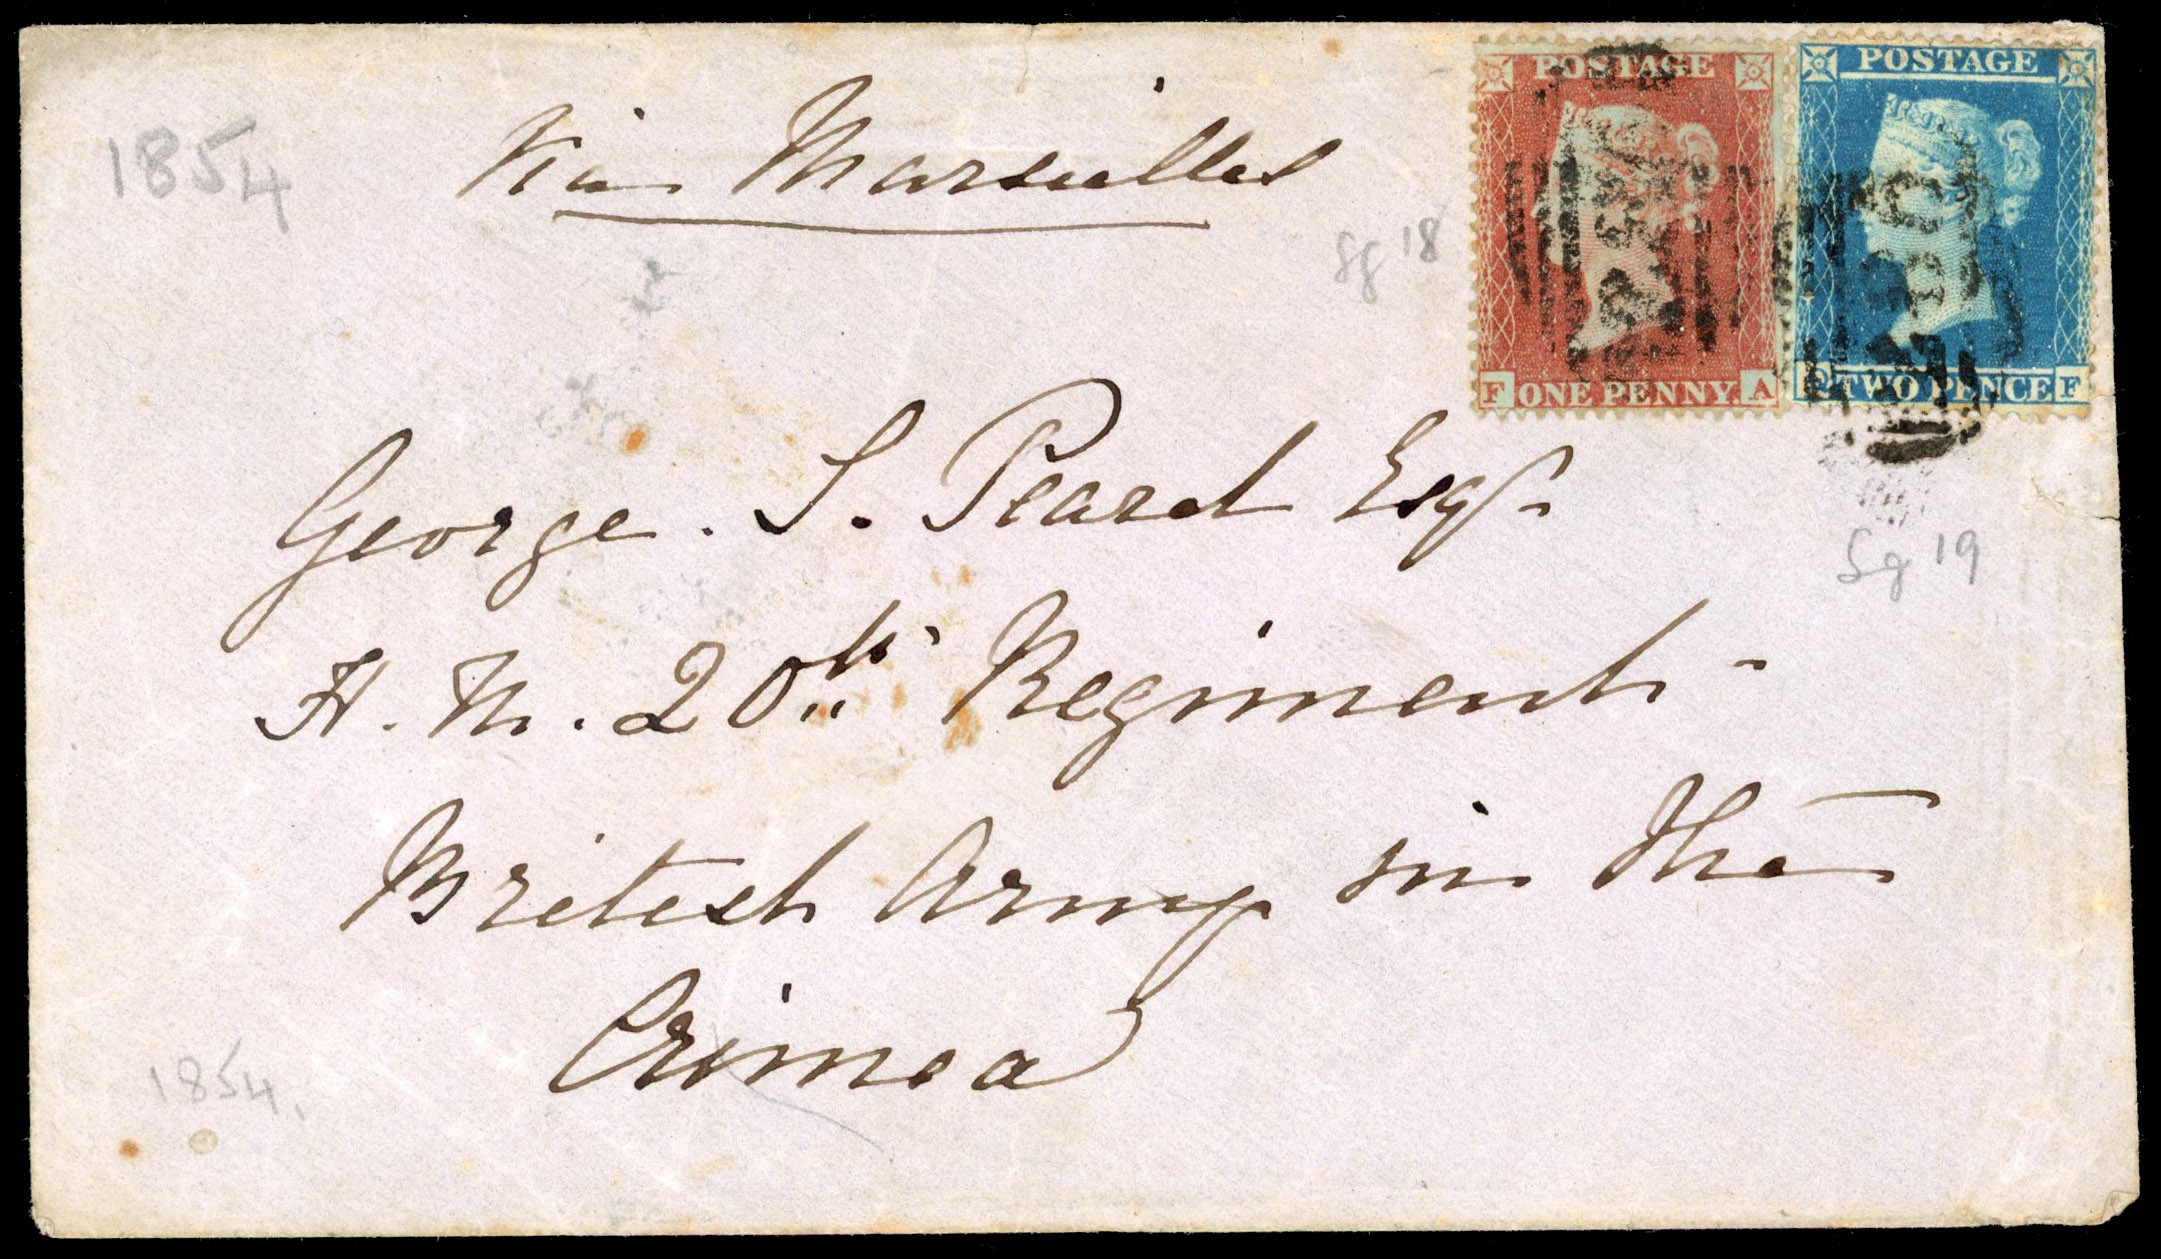 1854
Via Marseilles
POSTAGE
POSTAGE
Sg 18
F ONE PENNY A
Q TWO PENCE F
Sg 19
George. S. Peard Esqr.
H. M. 20th Regiment
British Army in the
Crimea
1854.